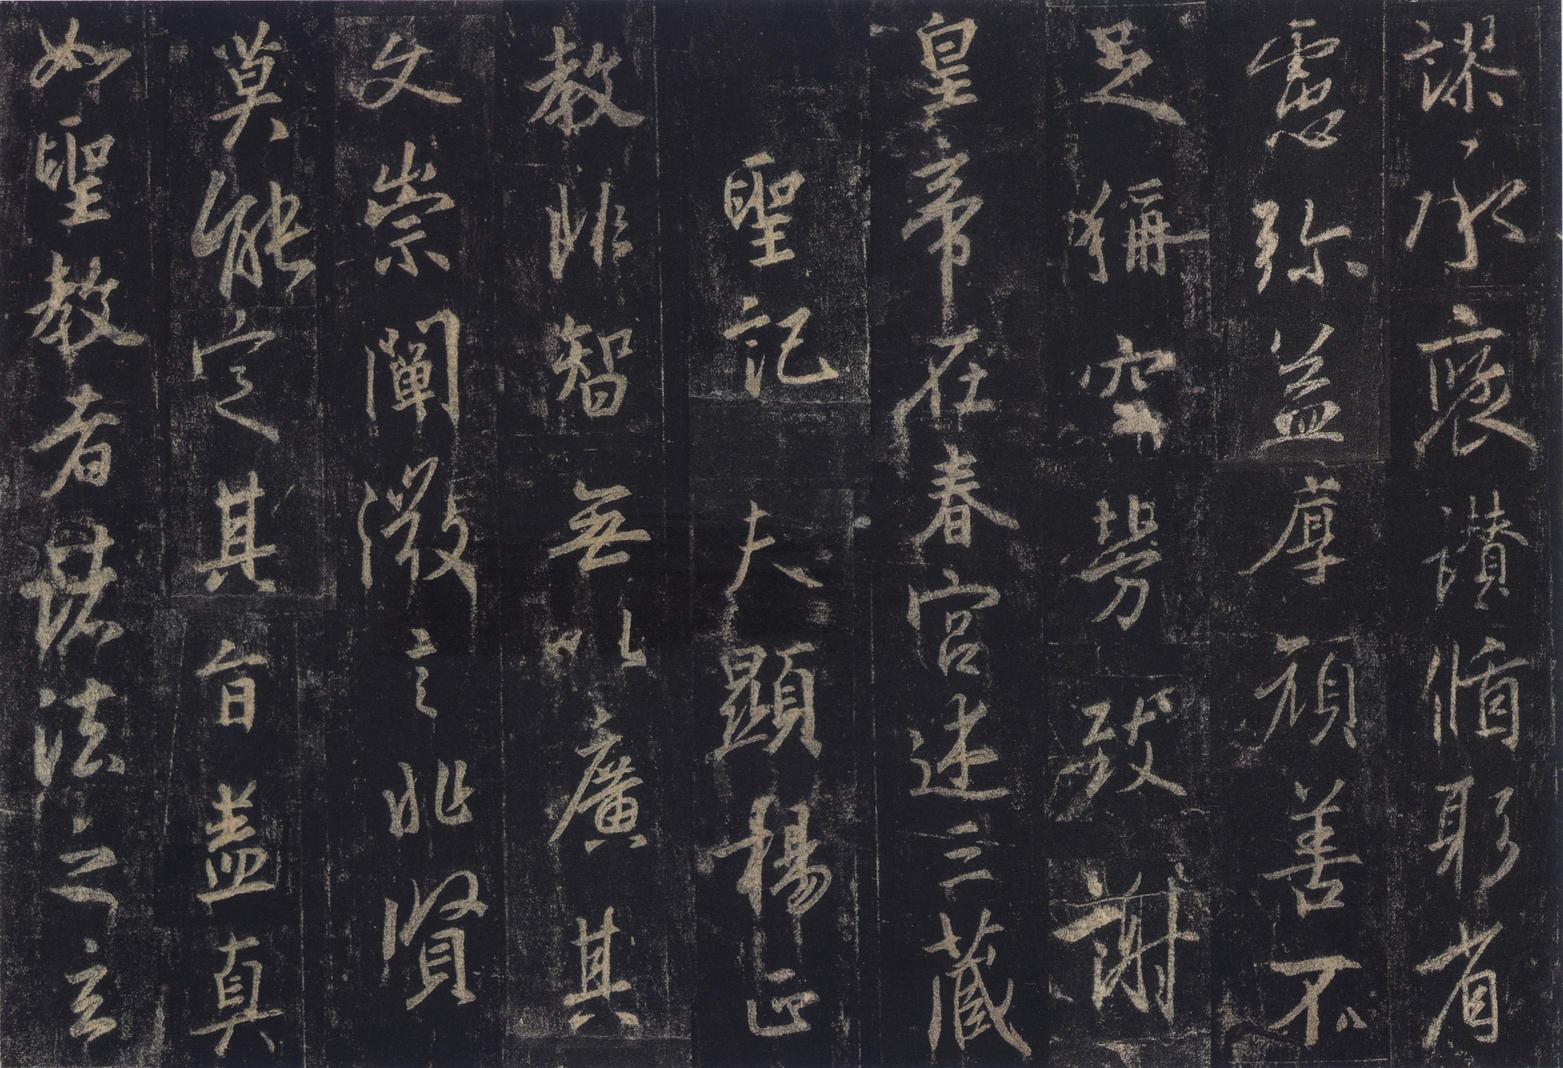 謬承褒讚循躬省
慮弥益厚顔善不
足稱空勞致謝
皇帝在春宮述三藏
聖記夫顯揚正
教非智無以廣其
文崇闡微言非賢
莫能定其旨盖真
如聖教者諸法之玄